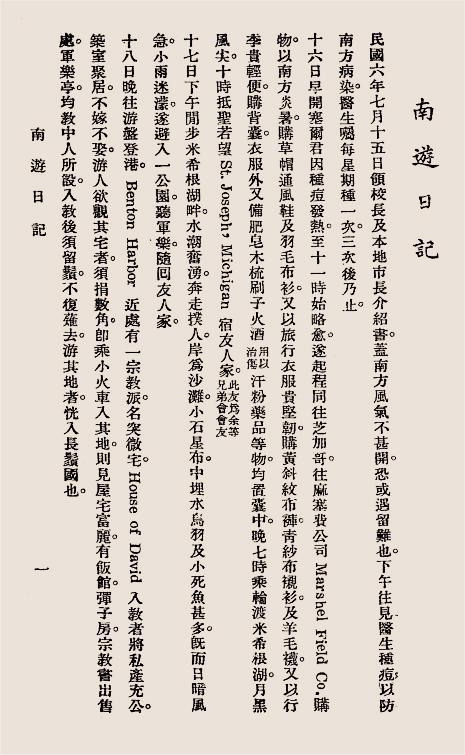 南遊日記
民國六年七月十五日領校長及本地市長介紹書。蓋南方風氣不甚開。恐或遇留難也。下午往見醫生種痘。以防
南方病染。醫生囑每星期種一次。三次後乃止。
十六日早開塞爾君因種痘發熱。至十一時始略愈。遂起程同往芝加哥。往麻塞費公司 Marshel Field Co. 購
物。以南方炎暑。購草帽通風鞋及羽毛布衫。又以旅行衣服貴堅韌。購黃斜紋布褲。青紗布襯衫。及羊毛襪。又以行
李貴輕便。購背囊。衣服外又備肥皂木梳刷子火酒用以治傷汗粉藥品等物。均置囊中。晚七時乘輪渡米希根湖。月黑
風尖。十時抵聖若望 St. Joseph, Michigan 宿友人家。此友為余等兄弟會會友
十七日下午閒步米希根湖畔。水潮奮湧。奔走撲人。岸爲沙灘。小石星布。中埋水鳥羽及小死魚甚多。旣而日暗風
急。小雨迷濛。遂避入一公園。聽軍樂。隨回友人家。
十八日晚往游盤登港。Benton Harbor 近處有一宗教派。名突微宅。House of David 入教者將私產充公。
築室聚居。不嫁不娶。游人欲觀其宅者。須捐數角。卽乘小火車入其地。則見屋宅富麗。有飯館。彈子房。宗教書出售
處。軍樂亭。均教中人所設。入教後須留鬚。不復薙去。游其地者。恍入長鬚國也。
南遊日記
一